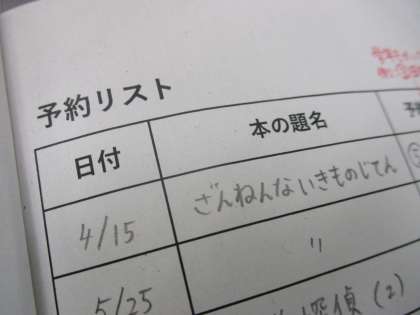 予約リスト
日付 本の題名 予
4/15 ざんねんないきものじてん
〃
5/25 探偵(2)